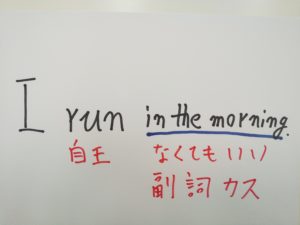 I run in the morning.
自王 なくてもいい
副詞カス